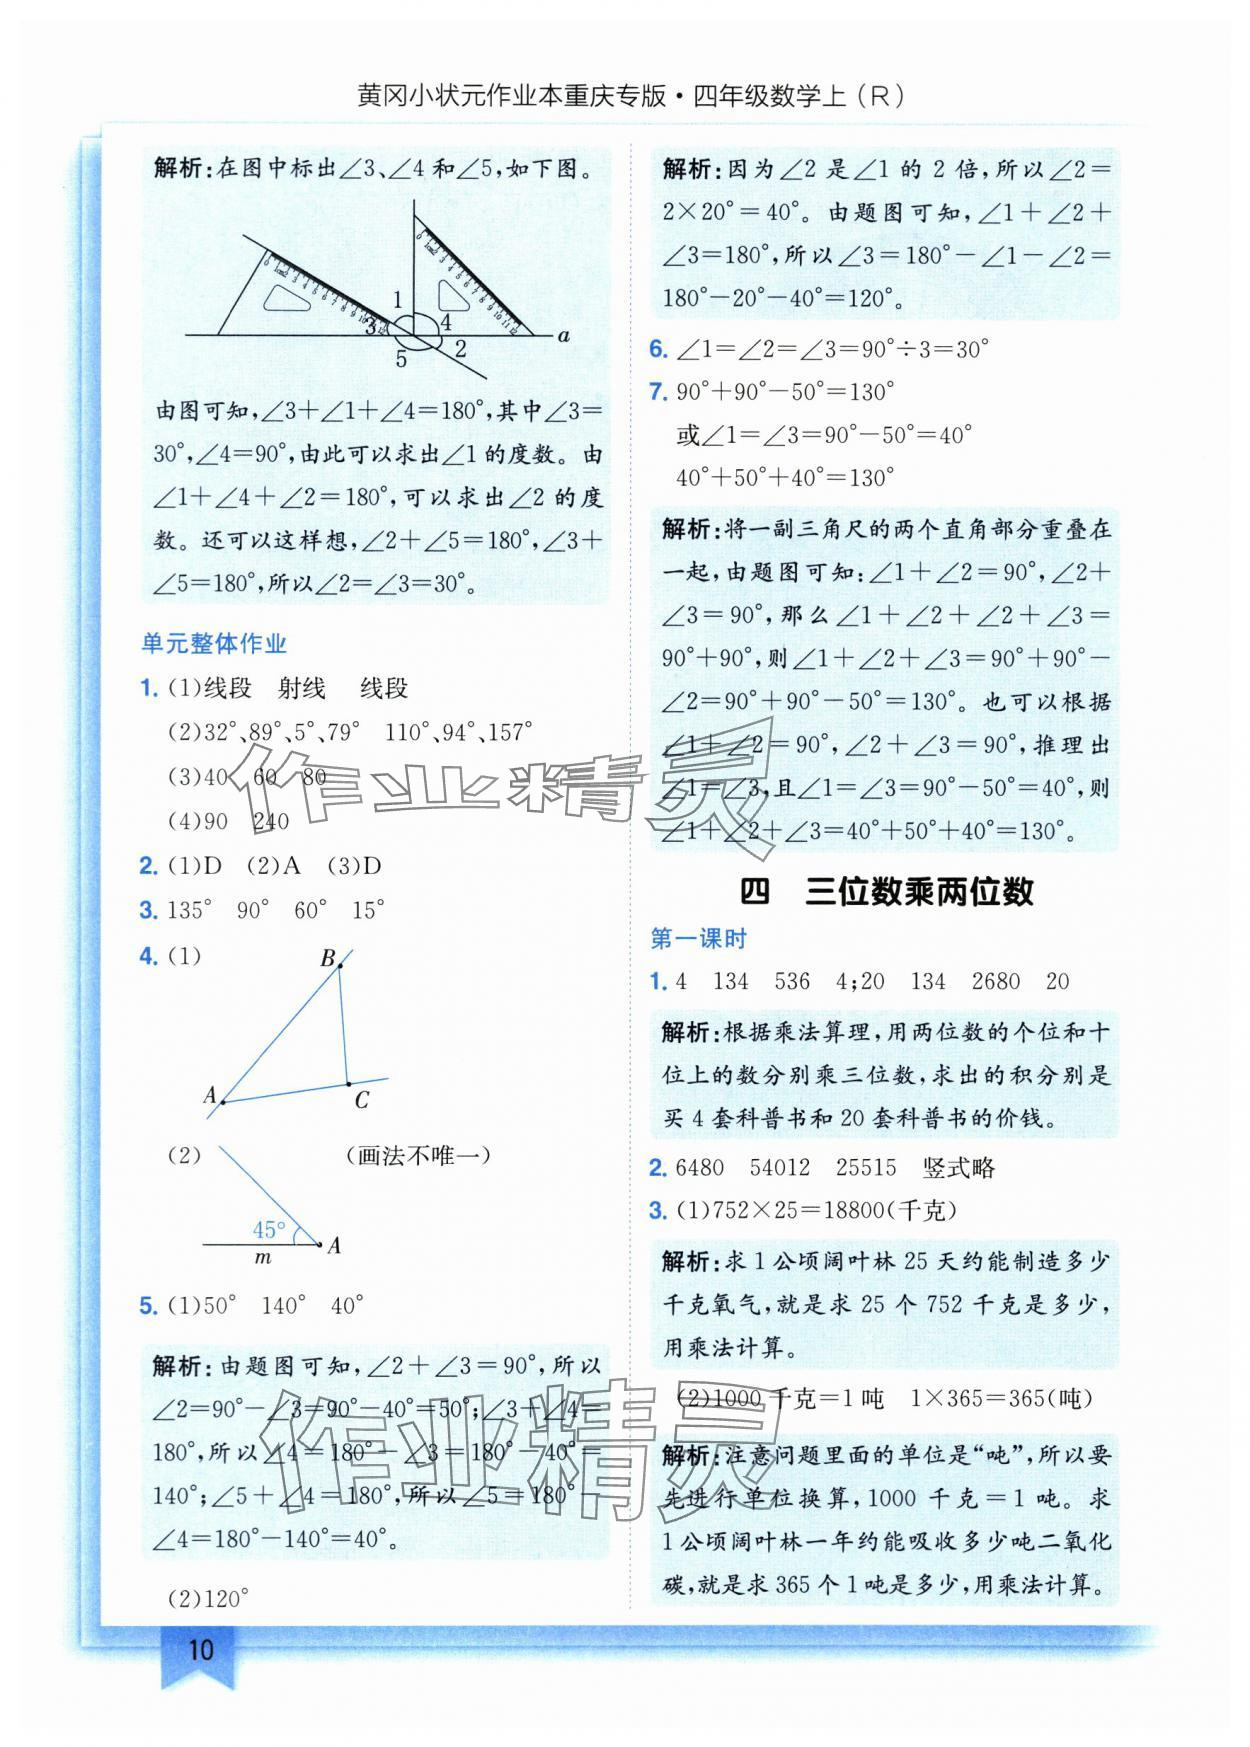 黄冈小状元作业本重庆专版·四年级数学上(R)
解析:在图中标出∠3、∠4和∠5,如下图。
1
4
3
2
5
a
由图可知,∠3+∠1+∠4=180°,其中∠3=
30°,∠4=90°,由此可以求出∠1的度数。由
∠1+∠4+∠2=180°,可以求出∠2的度
数。还可以这样想,∠2+∠5=180°,∠3+
∠5=180°,所以∠2=∠3=30°。
单元整体作业
1. (1)线段 射线 线段
(2)32°、89°、5°、79° 110°、94°、157°
(3)40 60 80
(4)90 240
2. (1)D (2)A (3)D
3. 135° 90° 60° 15°
4. (1)
B
A
C
(2) (画法不唯一)
45°
A
m
5. (1)50° 140° 40°
解析:由题图可知,∠2+∠3=90°,所以
∠2=90°-∠3=90°-40°=50°;∠3+∠4=
180°,所以∠4=180°-∠3=180°-40°=
140°;∠5+∠4=180°,所以∠5=180°-
∠4=180°-140°=40°。
(2)120°
解析:因为∠2是∠1的2倍,所以∠2=
2×20°=40°。由题图可知,∠1+∠2+
∠3=180°,所以∠3=180°-∠1-∠2=
180°-20°-40°=120°。
6. ∠1=∠2=∠3=90°÷3=30°
7. 90°+90°-50°=130°
或∠1=∠3=90°-50°=40°
40°+50°+40°=130°
解析:将一副三角尺的两个直角部分重叠在
一起,由题图可知:∠1+∠2=90°,∠2+
∠3=90°,那么∠1+∠2+∠2+∠3=
90°+90°,则∠1+∠2+∠3=90°+90°-
∠2=90°+90°-50°=130°。也可以根据
∠1+∠2=90°,∠2+∠3=90°,推理出
∠1=∠3,且∠1=∠3=90°-50°=40°,则
∠1+∠2+∠3=40°+50°+40°=130°。
四 三位数乘两位数
第一课时
1. 4 134 536 4;20 134 2680 20
解析:根据乘法算理,用两位数的个位和十
位上的数分别乘三位数,求出的积分别是
买4套科普书和20套科普书的价钱。
2. 6480 54012 25515 竖式略
3. (1)752×25=18800(千克)
解析:求1公顷阔叶林25天约能制造多少
千克氧气,就是求25个752千克是多少,
用乘法计算。
(2)1000千克=1吨 1×365=365(吨)
解析:注意问题里面的单位是“吨”,所以要
先进行单位换算,1000千克=1吨。求
1公顷阔叶林一年约能吸收多少吨二氧化
碳,就是求365个1吨是多少,用乘法计算。
10
作业精灵
作业精灵